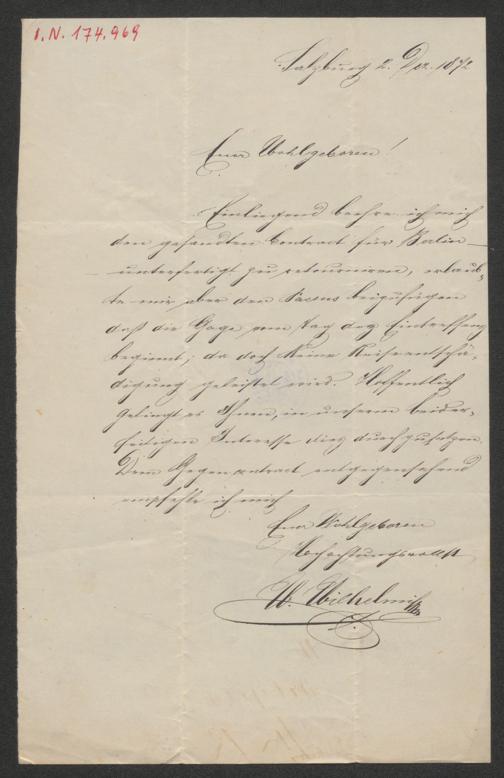 I.N. 174.969
Salzburg 2. Dez. 1872
Euer Wohlgeboren!
Einliegend beehre ich mich
den gesandten Contract für Berlin
unterfertigt zu retourniren, erlaub-
te mir aber den Passus beizufügen
daß die Gage vom Tag des Eintreffens
beginnt, da doch keine Reiseentschä-
digung geleistet wird. Hoffentlich
gelingt es Ihnen, in unserem beider-
seitigen Interesse dies durchzusetzen.
Dem Gegencontract entgegensehend
empfehle ich mich
Euer Wohlgeboren
Hochachtungsvollst
W. Wilhelmi